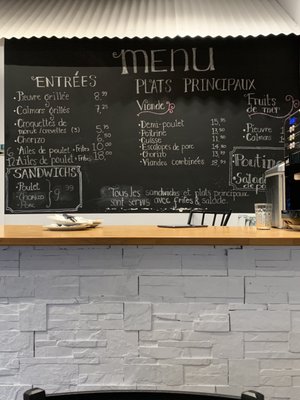 MENU
ENTRÉES
• Pieuvre grillée 8.95
• Calmars grillés 7.25
• Croquettes de
morue (crevettes) (3) 5.95
• Chorizo
6 Ailes de poulet + Frites 10.00
12 Ailes de poulet + Frites 18.00
SANDWICHS
• Poulet
• Chorizo
• Porc
9.99
PLATS PRINCIPAUX
Viande
• Demi-poulet 15.95
• Poitrine
• Cuisse
• Escalopes de porc
• Chorizo
• Viandes combinées
Fruits de
mer
• Pieuvre
• Calmars
Poutine
Salade
Tous les sandwichs et plats principaux
sont servis avec frites & salade.